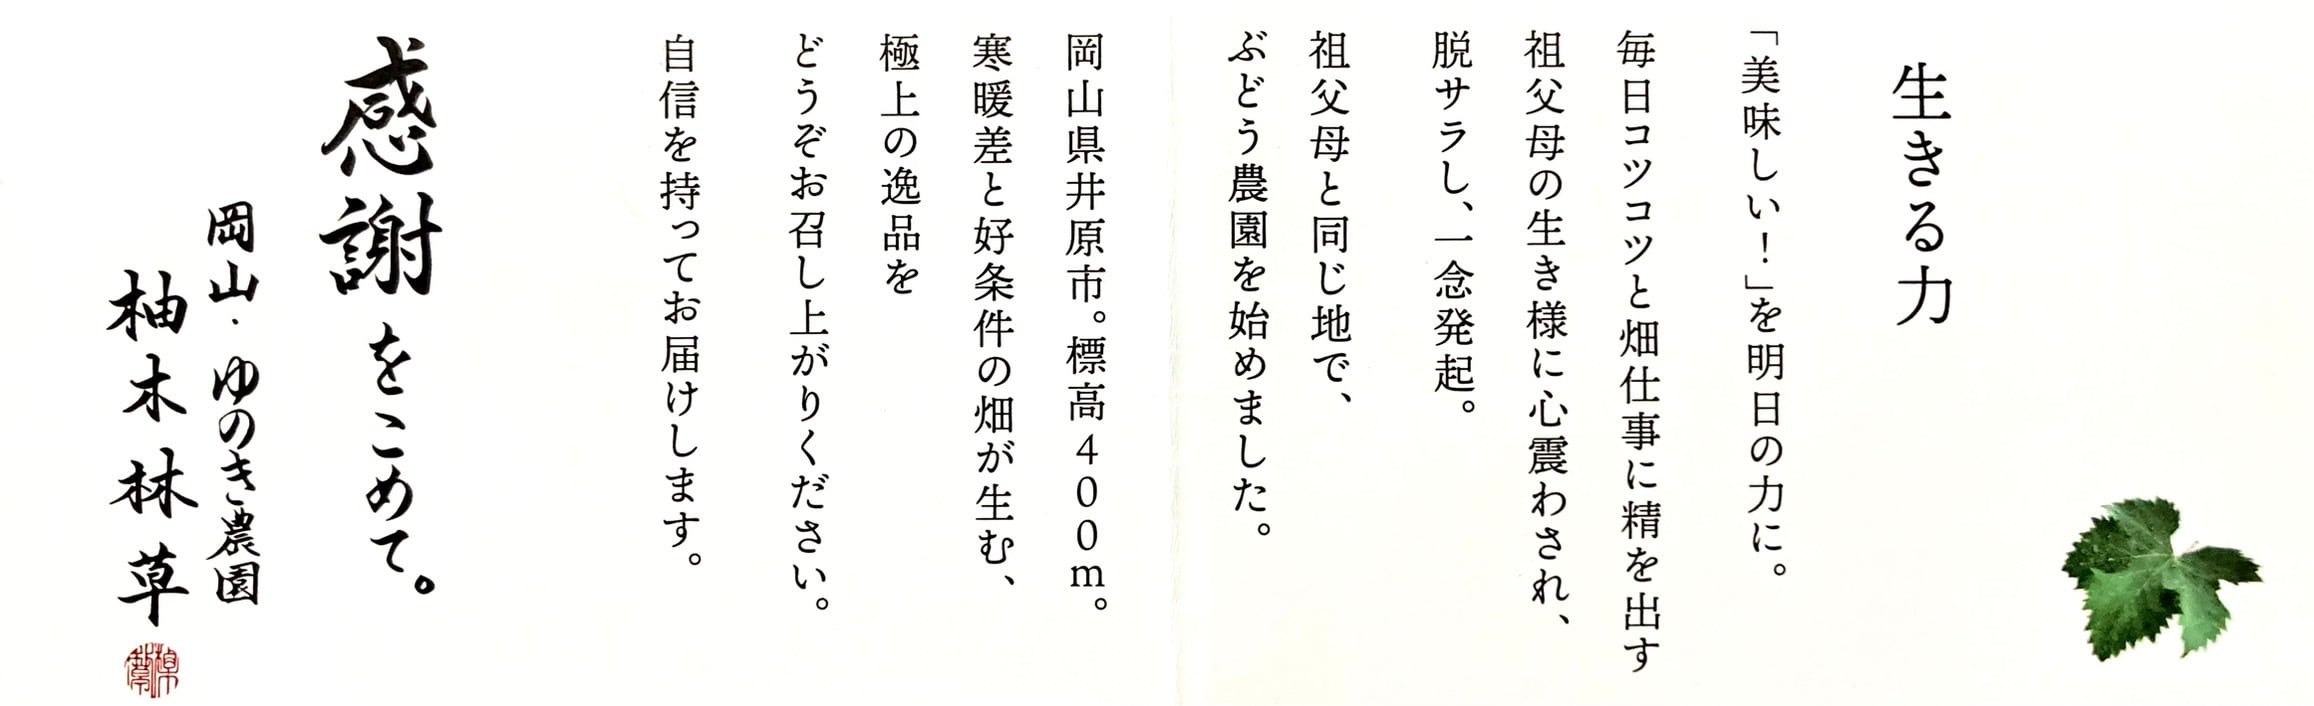 生きる力
「美味しい！」を明日の力に。
毎日コツコツと畑仕事に精を出す
祖父母の生き様に心震わされ、
脱サラし、一念発起。
祖父母と同じ地で、
ぶどう農園を始めました。
岡山県井原市。標高400m。
寒暖差と好条件の畑が生む、
極上の逸品を
どうぞお召し上がりください。
自信を持ってお届けします。
感謝をこめて。
岡山・ゆのき農園
柚木林草